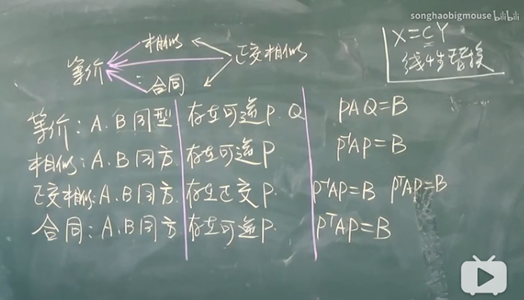 songhaobigmouse bilibili
X=CY
线性替换
相似
等价 正交相似
合同
等价:A.B同型 存在可逆P.Q PAQ=B
相似:A.B同方 存在可逆P P⁻¹AP=B
正交相似:A.B同方 存在正交P. P⁻¹AP=B PᵀAP=B
合同:A.B同方 存在可逆P. PᵀAP=B